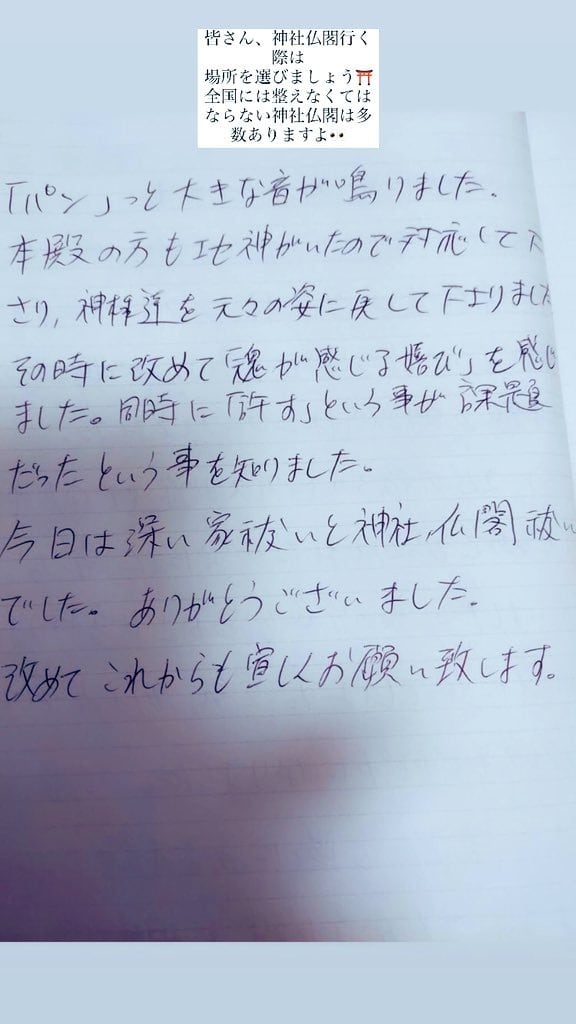 皆さん、神社仏閣行く
際は
場所を選びましょう⛩️
全国には整えなくては
ならない神社仏閣は多
数ありますよ👀
「パン」っと大きな音が鳴りました。
本殿の方も土地神がいたので対応して下
さり、神様達を元々の姿に戻して下さりました
その時に改めて「魂が感じる嬉び」を感じ
ました。同時に「許す」という事が課題
だったという事を知りました。
今日は深い家祓いと神社仏閣祓い
でした。ありがとうございました。
改めてこれからも宜しくお願い致します。